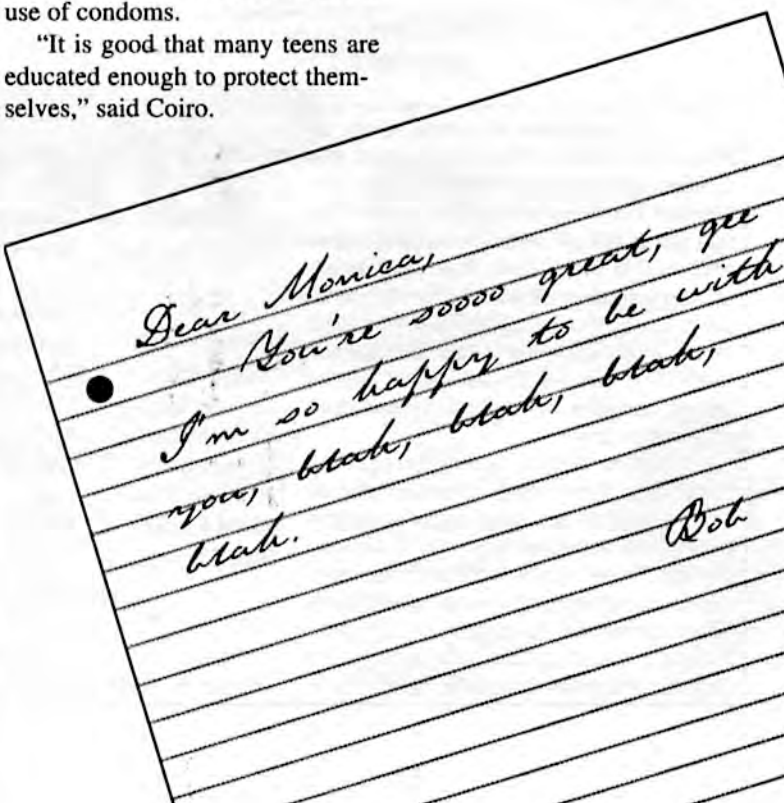 use of condoms.
"It is good that many teens are
educated enough to protect them-
selves," said Coiro.
Dear Monica,
You're soooo great, gee
I'm so happy to be with
you, blah, blah, blah,
blah.
Bob